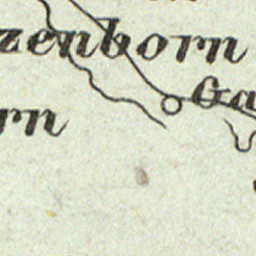 zenborn
Ga
rn